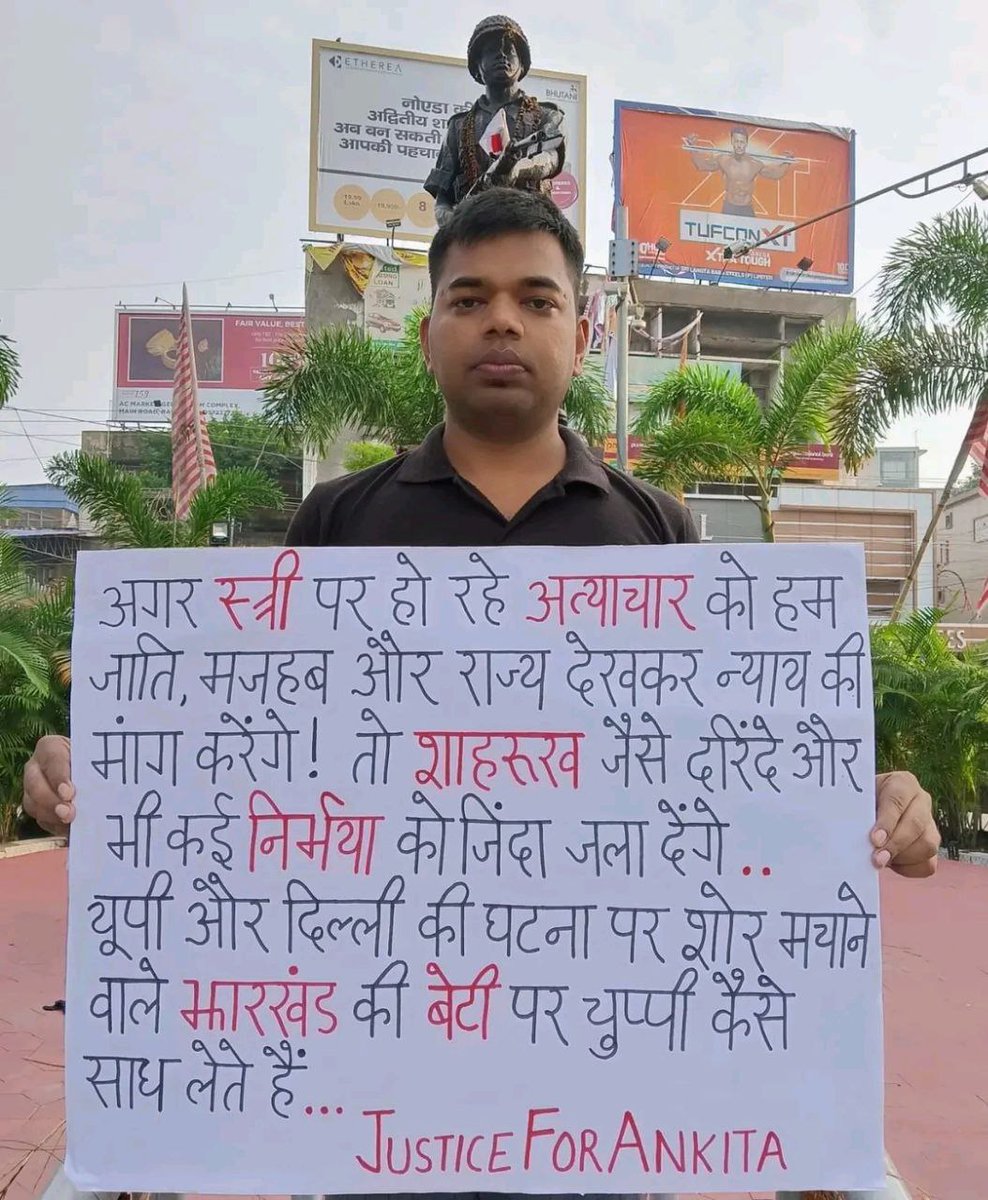 ETHEREA
BHUTANI
नोएडा की
अद्वितीय शा
अब बन सकती
आपकी पहचा
8
TUFCON XT
XTRA TOUGH
FAIR VALUE,
MAIN ROAD,
LOAN
अगर स्त्री पर हो रहे अत्याचार को हम
जाति, मजहब और राज्य देखकर न्याय की
मांग करेंगे! तो शाहरूख जैसे दरिंदे और
भी कई निर्भया को जिंदा जला देंगे..
यूपी और दिल्ली की घटना पर शोर मचाने
वाले झारखंड की बेटी पर चुप्पी कैसे
साध लेते हैं...
JUSTICE FOR ANKITA